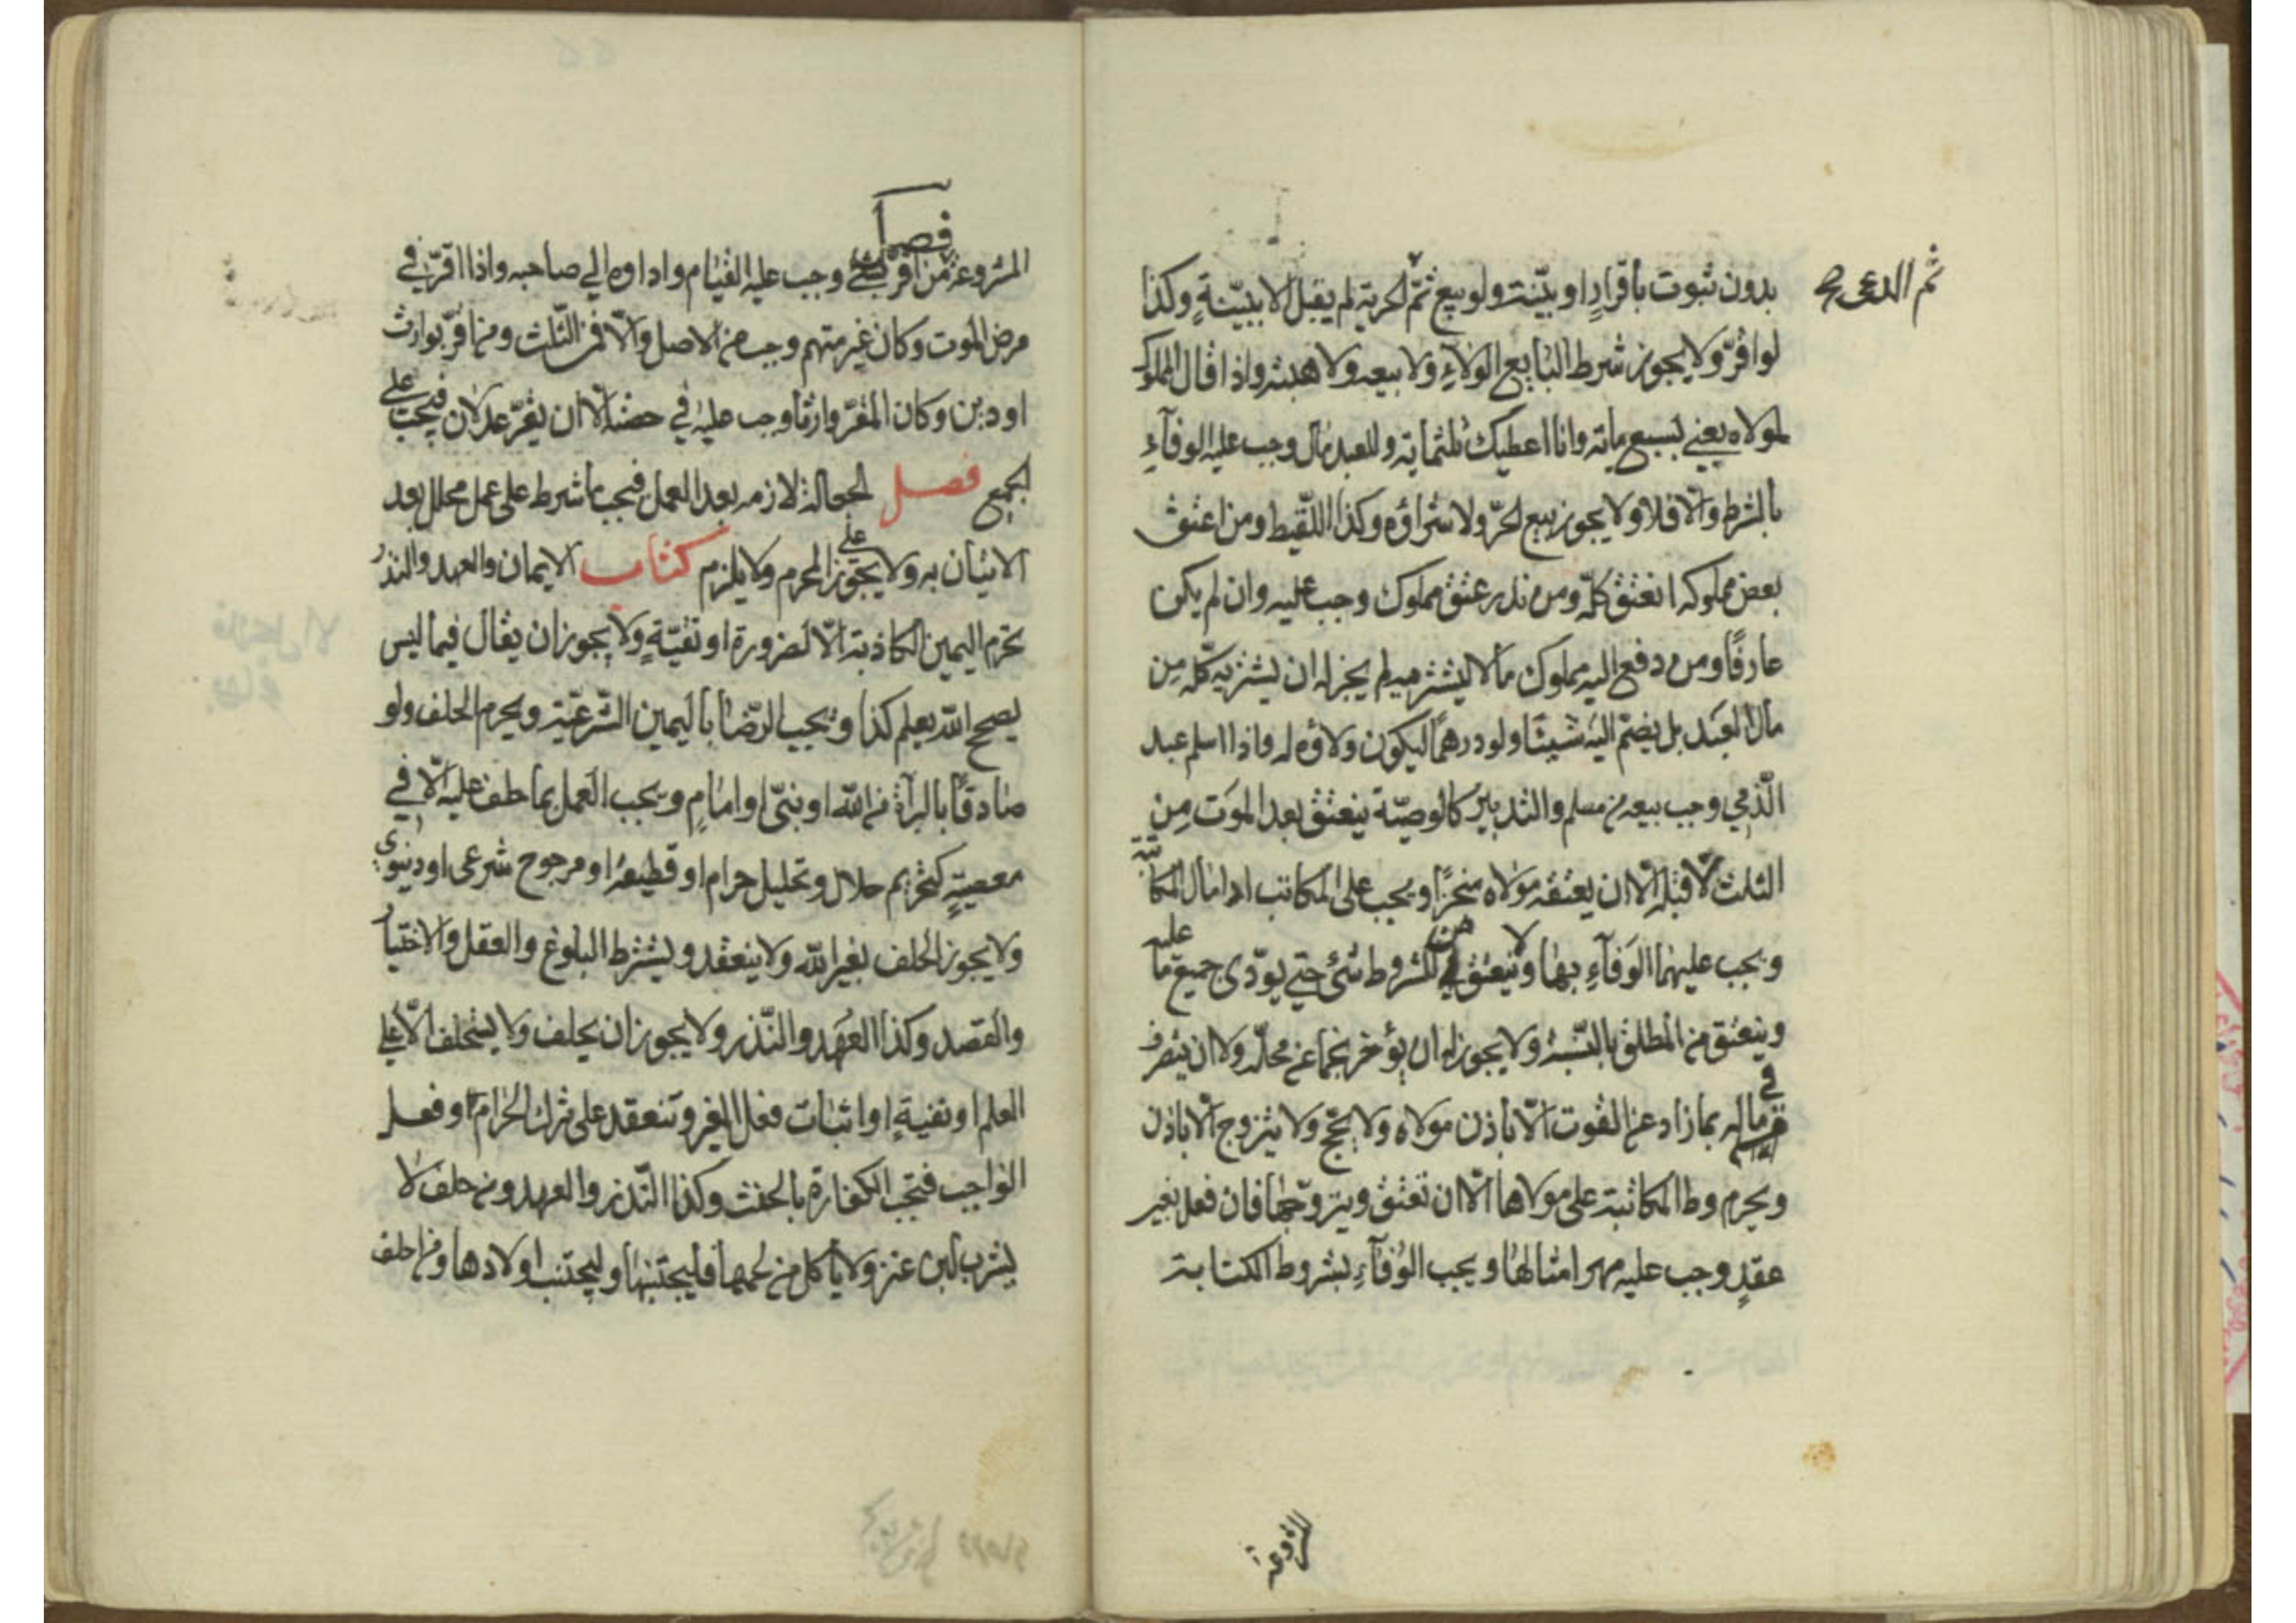 ثم الدعى صح
بدون ثبوت باقرارٍ او بيّنة ولو بيع ثمّ الحرية لم يقبل الا ببيّنةٍ وكذا
لو اقرّ ولا يجوز شرط البايع الولاءِ ولا بيعه ولا هبته واذا قال المملوك
لمولاه بعني بسبع مائة وانا اعطيك ثلثمائة وللعبد مال وجب عليه الوفآءِ
بالشرط والّا فلا ولا يجوز بيع الحرّ ولا شراؤه وكذا اللّقيط ومن اعتق
بعض مملوكه انعتق كلّه ومن نذر عتق مملوك وجب عليه وان لم يكن
عارفًا ومن دفع اليه مملوك مالا ليشتريه لم يجز له ان يشتريه كلّه مِن
مال العبد بل يضمّ اليه شيئًا ولو درهمًا ليكون ولاؤه له واذا اسلم عبد
الذّمي وجب بيعه من مسلم والتدبير كالوصيّة ينعتق بعد الموت مِن
الثلث لا قبله الّا ان يعتقه مولاه منجزًا ويجب على المكاتب اداء مال المكاتبة
ويجب عليهما الوَفآءِ بها ولا ينعتق من المشروط شئ حتى يودّى جميع ما عليه
وينعتق من المطلق بالنّسبة ولا يجوز له ان يؤخر نجما عن محلّه ولا ان يتصرف
في ماله بما زاد عن القوت الّا باذن مولاه ولا يحجّ ولا يتزوج الّا باذن
ويحرم وطا المكاتبة على مولاها الّا ان تعتق ويتزوّجها فان فعل بغير
عقدٍ وجب عليه مهر امثالها ويجب الوفآءِ بشروط الكتابة
المشروعة
فصل
المشروعة من اقرّ بشئ وجب عليه القيام واداوه الي صاحبه واذا اقرّ في
مرض الموت وكان غير متهم وجب من الاصل والّا فمن الثّلث ومن اقرّ بوارث
او دين وكان المقرّ وارثا وجب عليه في حصّته الّا ان يقرّ عدلان فيجب على
الجميع فصل الجعالة لازمة بعد العمل فيجب ما شرط على عمل محلل بعد
الاتيان به ولا يجوز على المحرم ولا يلزم كتاب الايمان والعهد والنذر
تحرم اليمين الكاذبة الّا لضرورة او تقيّةٍ ولا يجوز ان يقال فيما ليس
يصحح الله يعلم كذا ويجب الرّضا باليمين الشّرعيّة ويحرم الحلف ولو
صادقًا بالبرآة من الله او نبيّ او امامٍ ويجب العمل بما حلف عليه الّا في
معصيةٍ كتحريم حلال وتحليل حرام او قطيعة او مرجوح شرعى او دنيوى
ولا يجوز الحلف بغير الله ولا ينعقد ويشترط البلوغ والعقل والاختيار
والقصد وكذا العهد والنّذر ولا يجوز ان يحلف ولا يستحلف الّا على
العلم او نفيةٍ او اثبات فعل الغير وتنعقد على ترك الحرام او فعل
الواجب فتجب الكفارة بالحنث وكذا النّذر والعهد ومن حلف لا
يشرب لبن عنز ولا ياكل من لحمها فليجتنبها وليجتنب اولادها ومن حلف